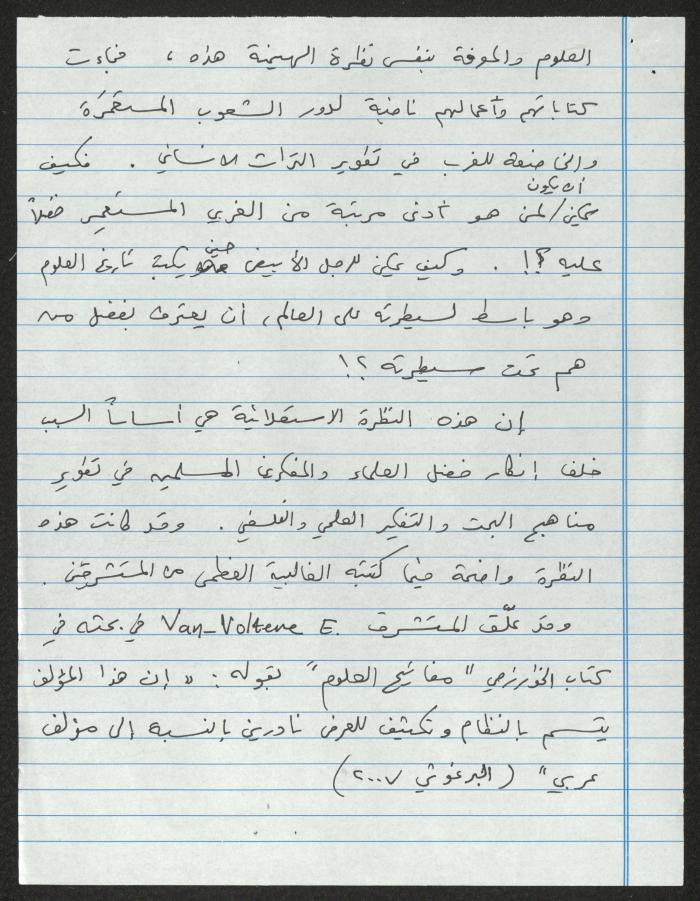 العلوم والمعرفة بنفس نظرة الهيمنة هذه ، فجاءت
كتاباتهم وأعمالهم نافية لدور الشعوب المستعمَرة
والخاضعة للغرب في تطوير التراث الانساني . فكيف
أن يكون
يمكن / لمن هو أدنى مرتبة من الغربي المستعمِر فضلاً
عليه ؟! . وكيف يمكن للرجل الأبيض حين يكتب تاريخ العلوم
وهو باسط لسيطرته على العالم، أن يعترف بفضل من
هم تحت سيطرته ؟!
إن هذه النظرة الاستعلائية هي أساساً السبب
خلف إنكار فضل العلماء والمفكرين المسلمين في تطوير
مناهج البحث والتفكير العلمي والفلسفي . وقد كانت هذه
النظرة واضحة فيما كتبته الغالبية العظمى من المستشرقين .
وقد علّق المستشرق Van-Voltene E. في بحثه في
كتاب الخوارزمي "مفاتيح العلوم" بقوله : « إن هذا المؤلف
يتسم بالنظام وتكثيف للعرض نادرين بالنسبة إلى مؤلف
عربي" (البرغوثي ٢٠٠٧)